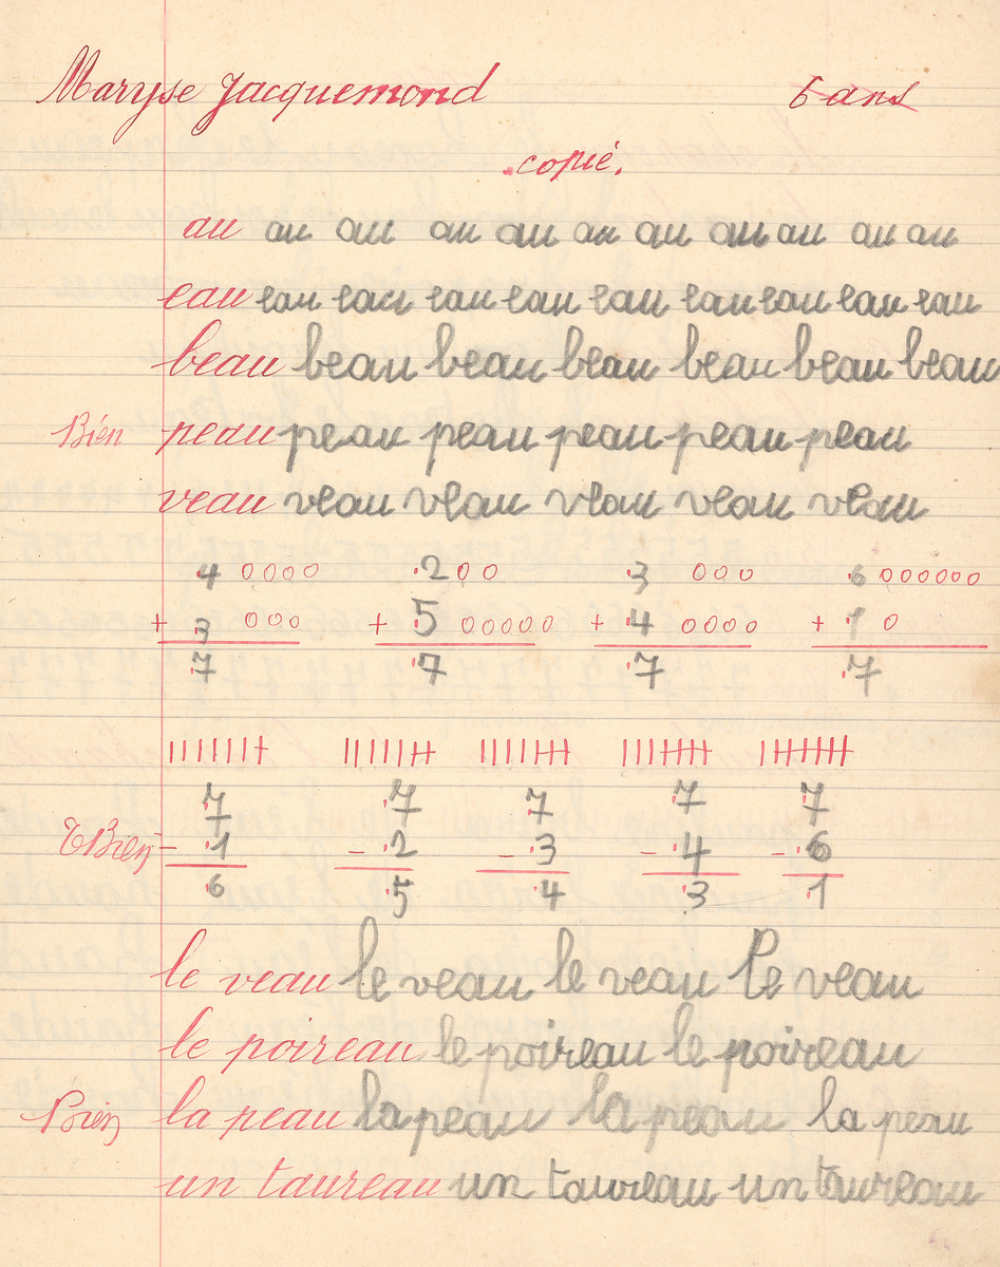 Maryse Jacquemond 6 ans
copié.
au au au au au au au au au au au
eau eau eau eau eau eau eau eau eau eau
beau beau beau beau beau beau beau
Bien peau peau peau peau peau peau
veau veau veau veau veau veau
4 0000 2 00 3 000 6 000000
+ 3 000 + 5 00000 + 4 0000 + 1 0
7 7 7 7
7 7 7 7 7
TBien - 1 - 2 - 3 - 4 - 6
6 5 4 3 1
le veau le veau le veau le veau
le poireau le poireau le poireau
Bien la peau la peau la peau la peau
un taureau un taureau un taureau